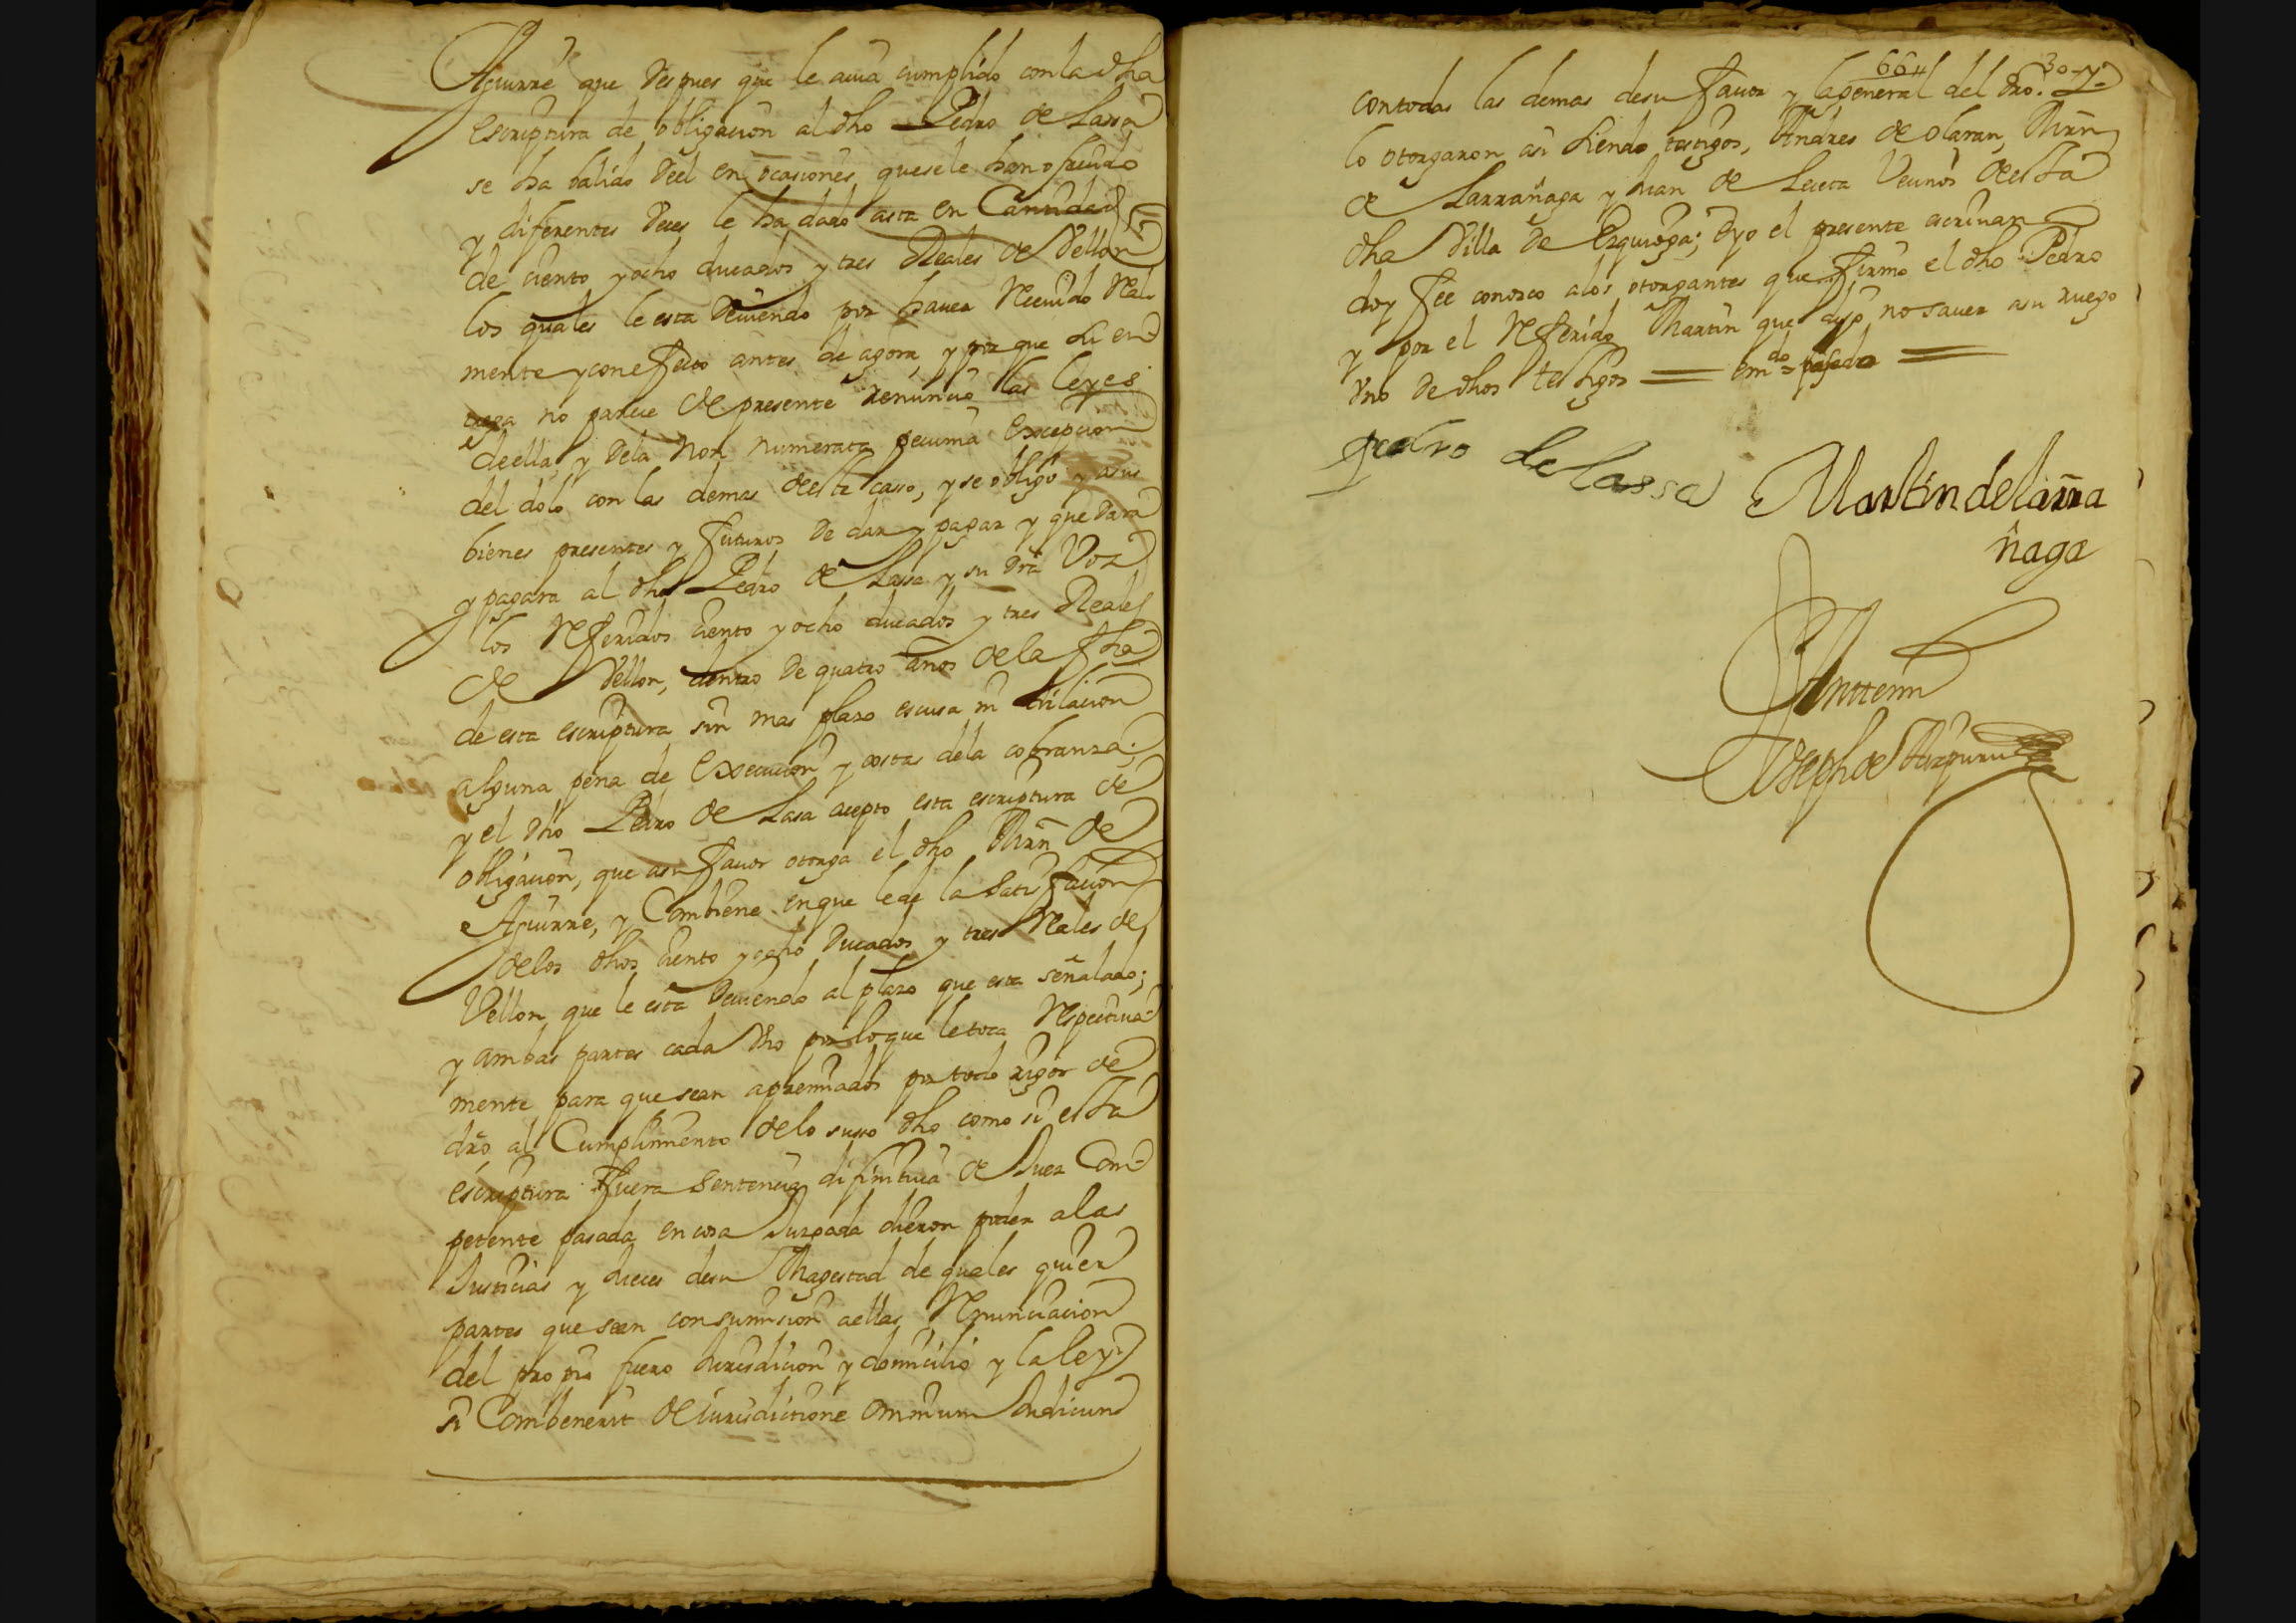 Aguirre que despues que le auia cumplido con la dha
escriptura de obligacion al dho Pedro de Lassa
se ha balido deel en ocasiones que se le han ofrecido
y diferentes veces le ha dado asta en Cantidad
de ciento y ocho ducados y tres Reales de Vellon
los quales le esta deuiendo por hauer Receuido Real
mente y con efecto antes de agora, y por que su en
trega no parece de presente renuncio las leyes
deella, y dela non numerata pecunia excepcion
del dolo con las demas deeste casso, y se obligo y a sus
bienes presentes y futuros de dar y pagar y que dara
y pagara al dho Pedro de Lassa y su dra Voz
los Referidos ciento y ocho ducados y tres Reales
de Vellon, dentro de quatro años de la fha
de esta escriptura sin mas plazo escusa ni dilacion
alguna pena de execucion y costas dela cobranza;
y el dho Pedro de Lasa acepto esta escriptura de
obligacion, que a su fauor otorga el dho Mrn de
Aguirre, y Combiene en que le de la Satisfacion
de los dhos ciento y ocho Ducados y tres Reales de
Vellon que le esta deuiendo al plazo que esta señalado;
y ambas partes cada Vno por lo que le toca Respectiua
mente para que sean apremiados por todo rigor de
dro al Cumplimiento de lo suso dho como si esta
escriptura fuera Sentencia difinitiua de Juez Com
petente pasada en cosa Juzgada dieron poder a las
Justicias y Jueces de su Magestad de quales quier
partes que sean con sumision a ellas Renunciacion
del propio fuero Jurisdicion y domicilio y la ley
si Combenerit de iurisdictione omnium Judicum
664 30-7
con todas las demas de su fauor y la general del dro.
lo otorgaron asi siendo testigos, Andres de Olaran, Mrn
de Larrañaga y Juan de Leceta Vecinos deesta
dha Villa de Ezquioga; e yo el presente escriuano
doy fee conozco a los otorgantes que firmo el dho Pedro
y por el Referido Martin que dijo no sauer a su ruego
Vno de dhos testigos = emdo = pasada =
pedro de lassa Martin de larra
ñaga
Ante mi
Joseph de Aizpuru